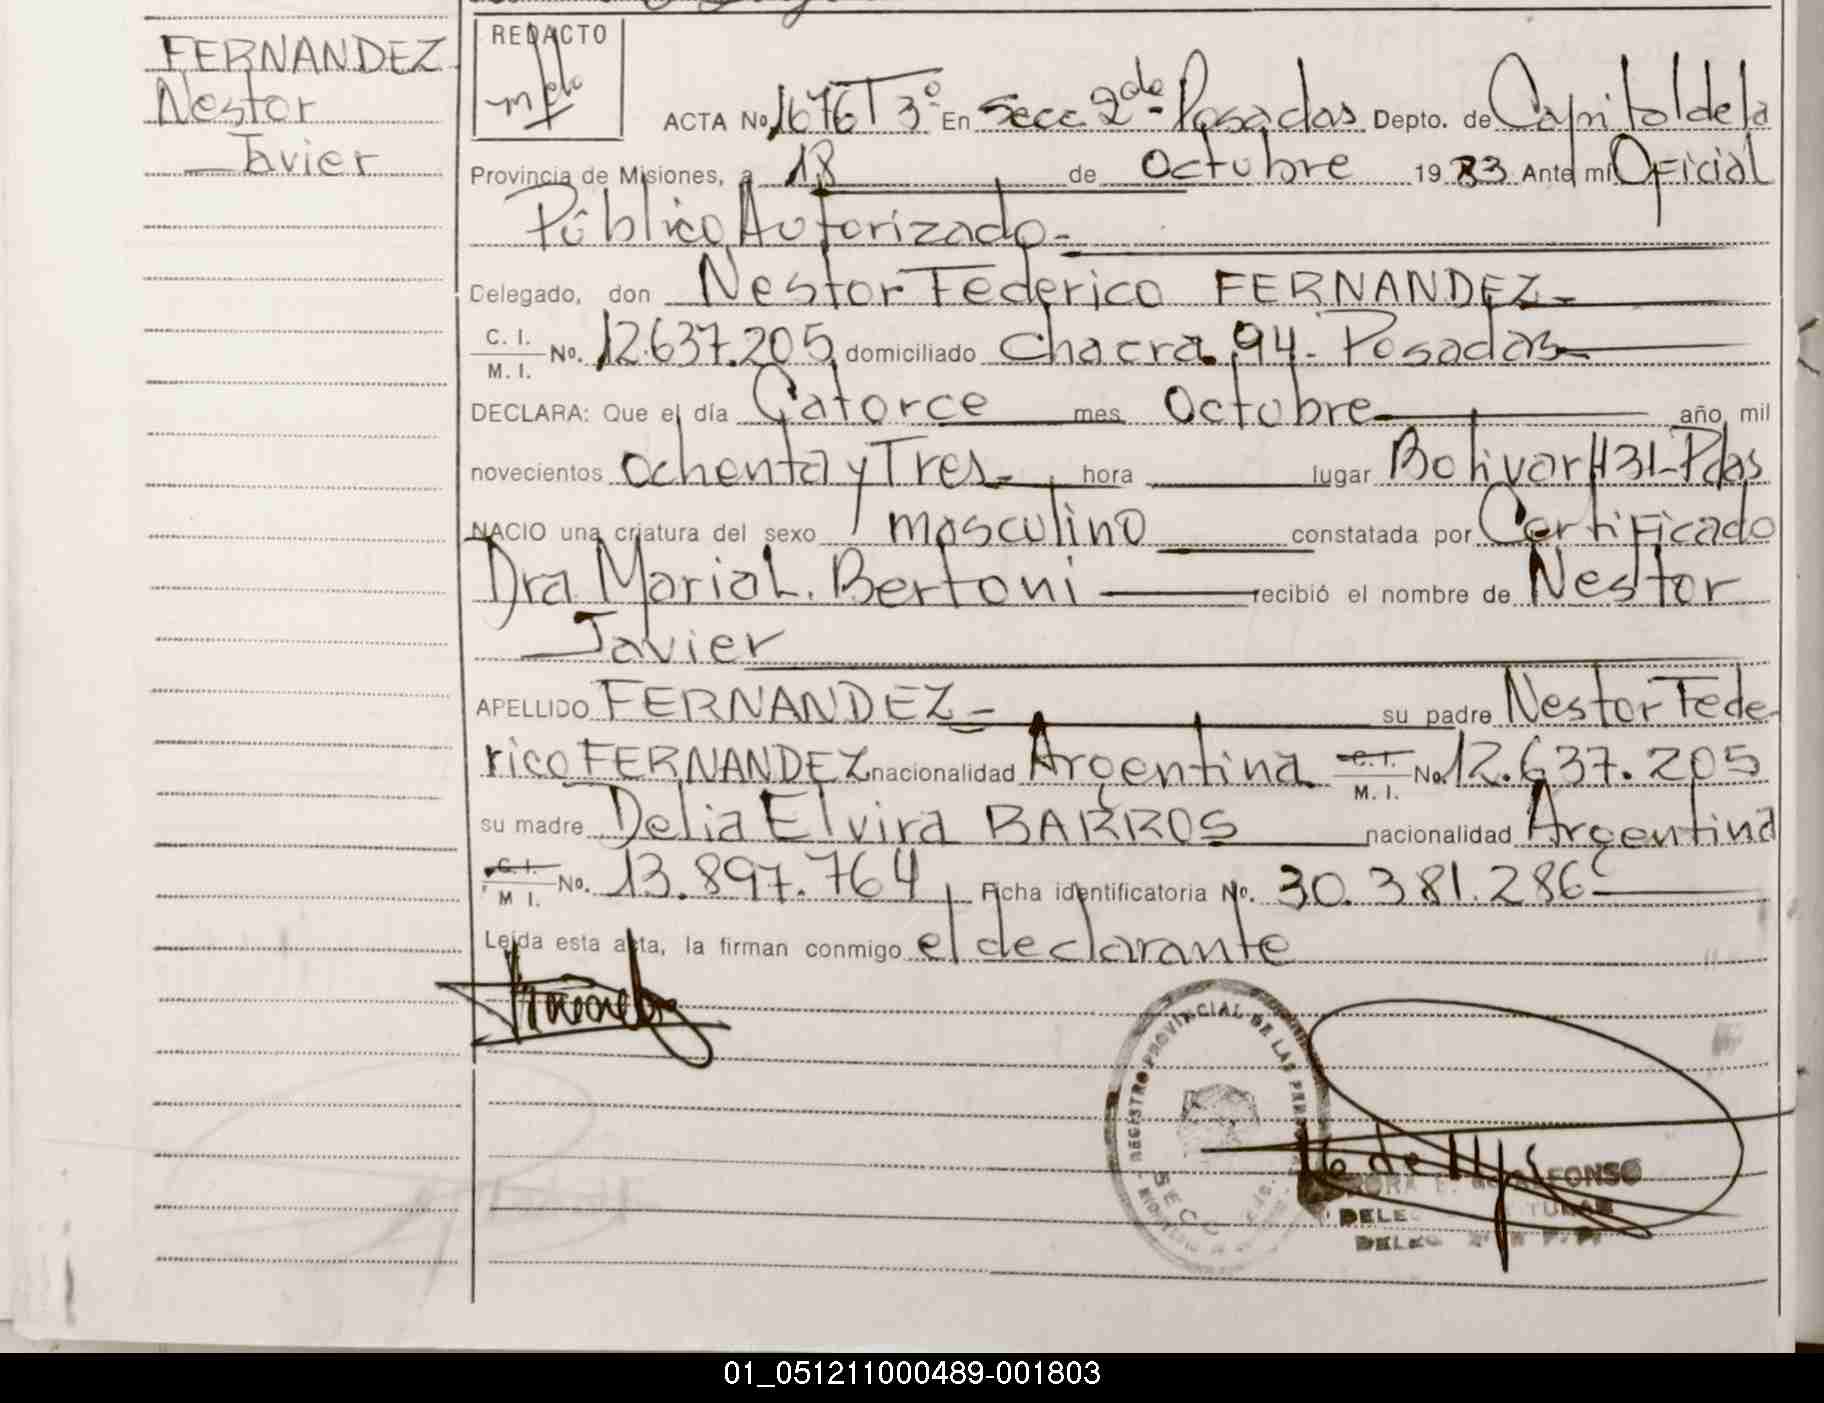 FERNANDEZ
Nestor
Javier
REDACTO
ACTA No 1676 T 3º En Secc 2da Posadas Depto. de Capital de la
Provincia de Misiones, a 18 de Octubre 1983 Ante mí Oficial
Público Autorizado -
Delegado, don Nestor Federico FERNANDEZ -
C. I.
M. I. No. 12.637.205 domiciliado Chacra 94 - Posadas
DECLARA: Que el día Catorce mes Octubre año mil
novecientos Ochenta y Tres - hora lugar Bolivar 431 - Pdas
NACIO una criatura del sexo masculino constatada por Certificado
Dra. Maria L. Bertoni recibió el nombre de Nestor
Javier
APELLIDO FERNANDEZ - su padre Nestor Fede-
rico FERNANDEZ nacionalidad Argentina C. I. M. I. No. 12.637.205
su madre Delia Elvira BARROS nacionalidad Argentina
C. I. M I. No. 13.897.764 Ficha identificatoria No. 30.381.286
Leída esta acta, la firman conmigo el declarante
REGISTRO PROVINCIAL DE LAS
SECC
ALFONSO
01_051211000489-001803